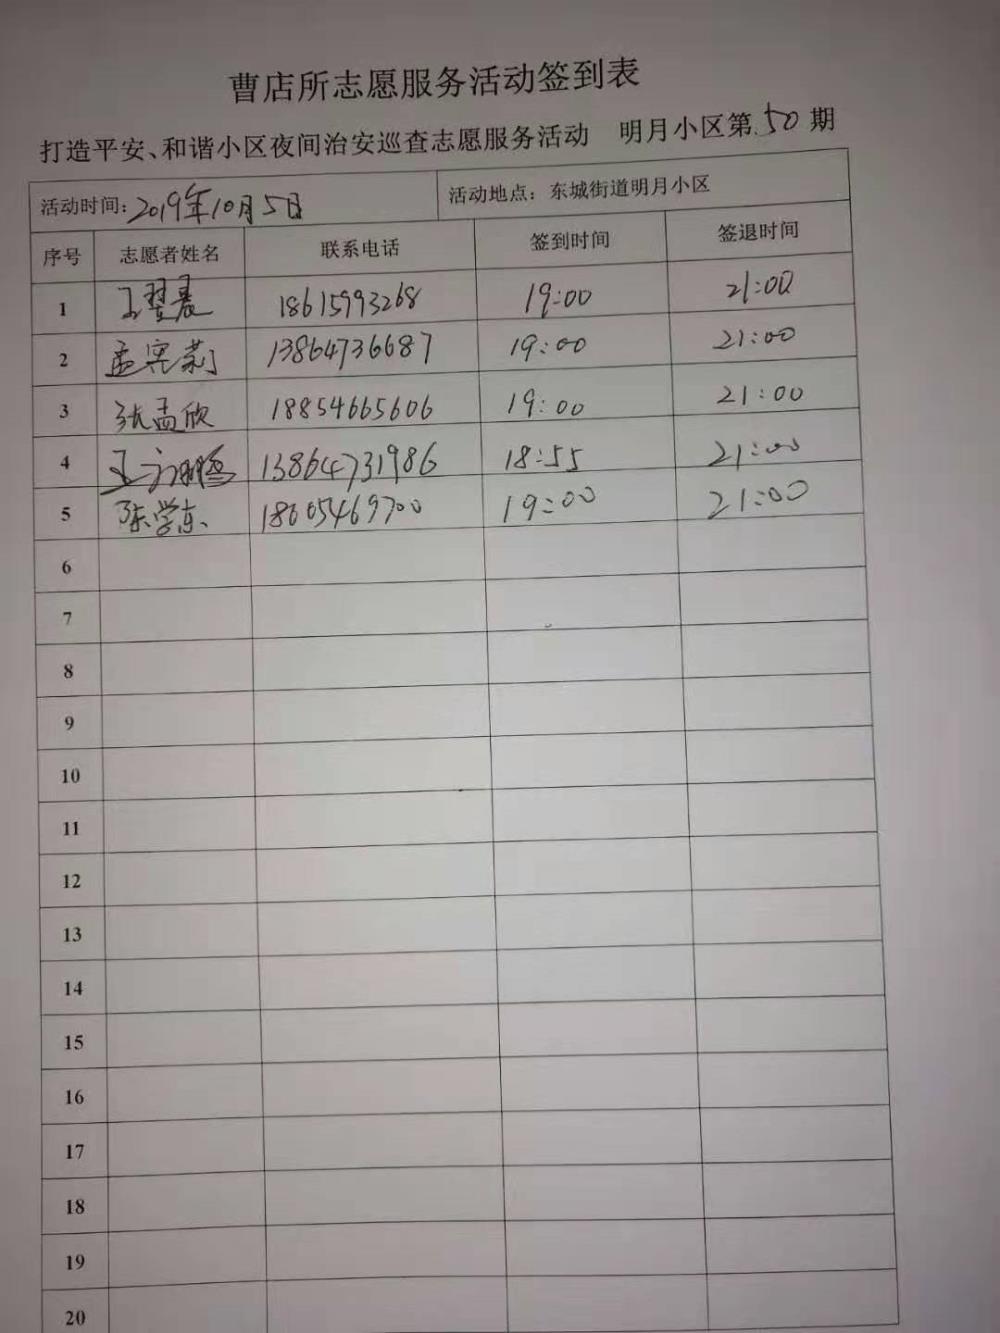 曹店所志愿服务活动签到表
打造平安、和谐小区夜间治安巡查志愿服务活动 明月小区第 50 期
活动时间: 2019年10月5日 活动地点: 东城街道明月小区
序号 志愿者姓名 联系电话 签到时间 签退时间
1 王翠晨 18615993268 19:00 21:00
2 孟宪莉 13864736687 19:00 21:00
3 张孟欣 18854665606 19:00 21:00
4 王 13864731986 18:55 21:00
5 陈学东 18605469700 19:00 21:00
6
7
8
9
10
11
12
13
14
15
16
17
18
19
20